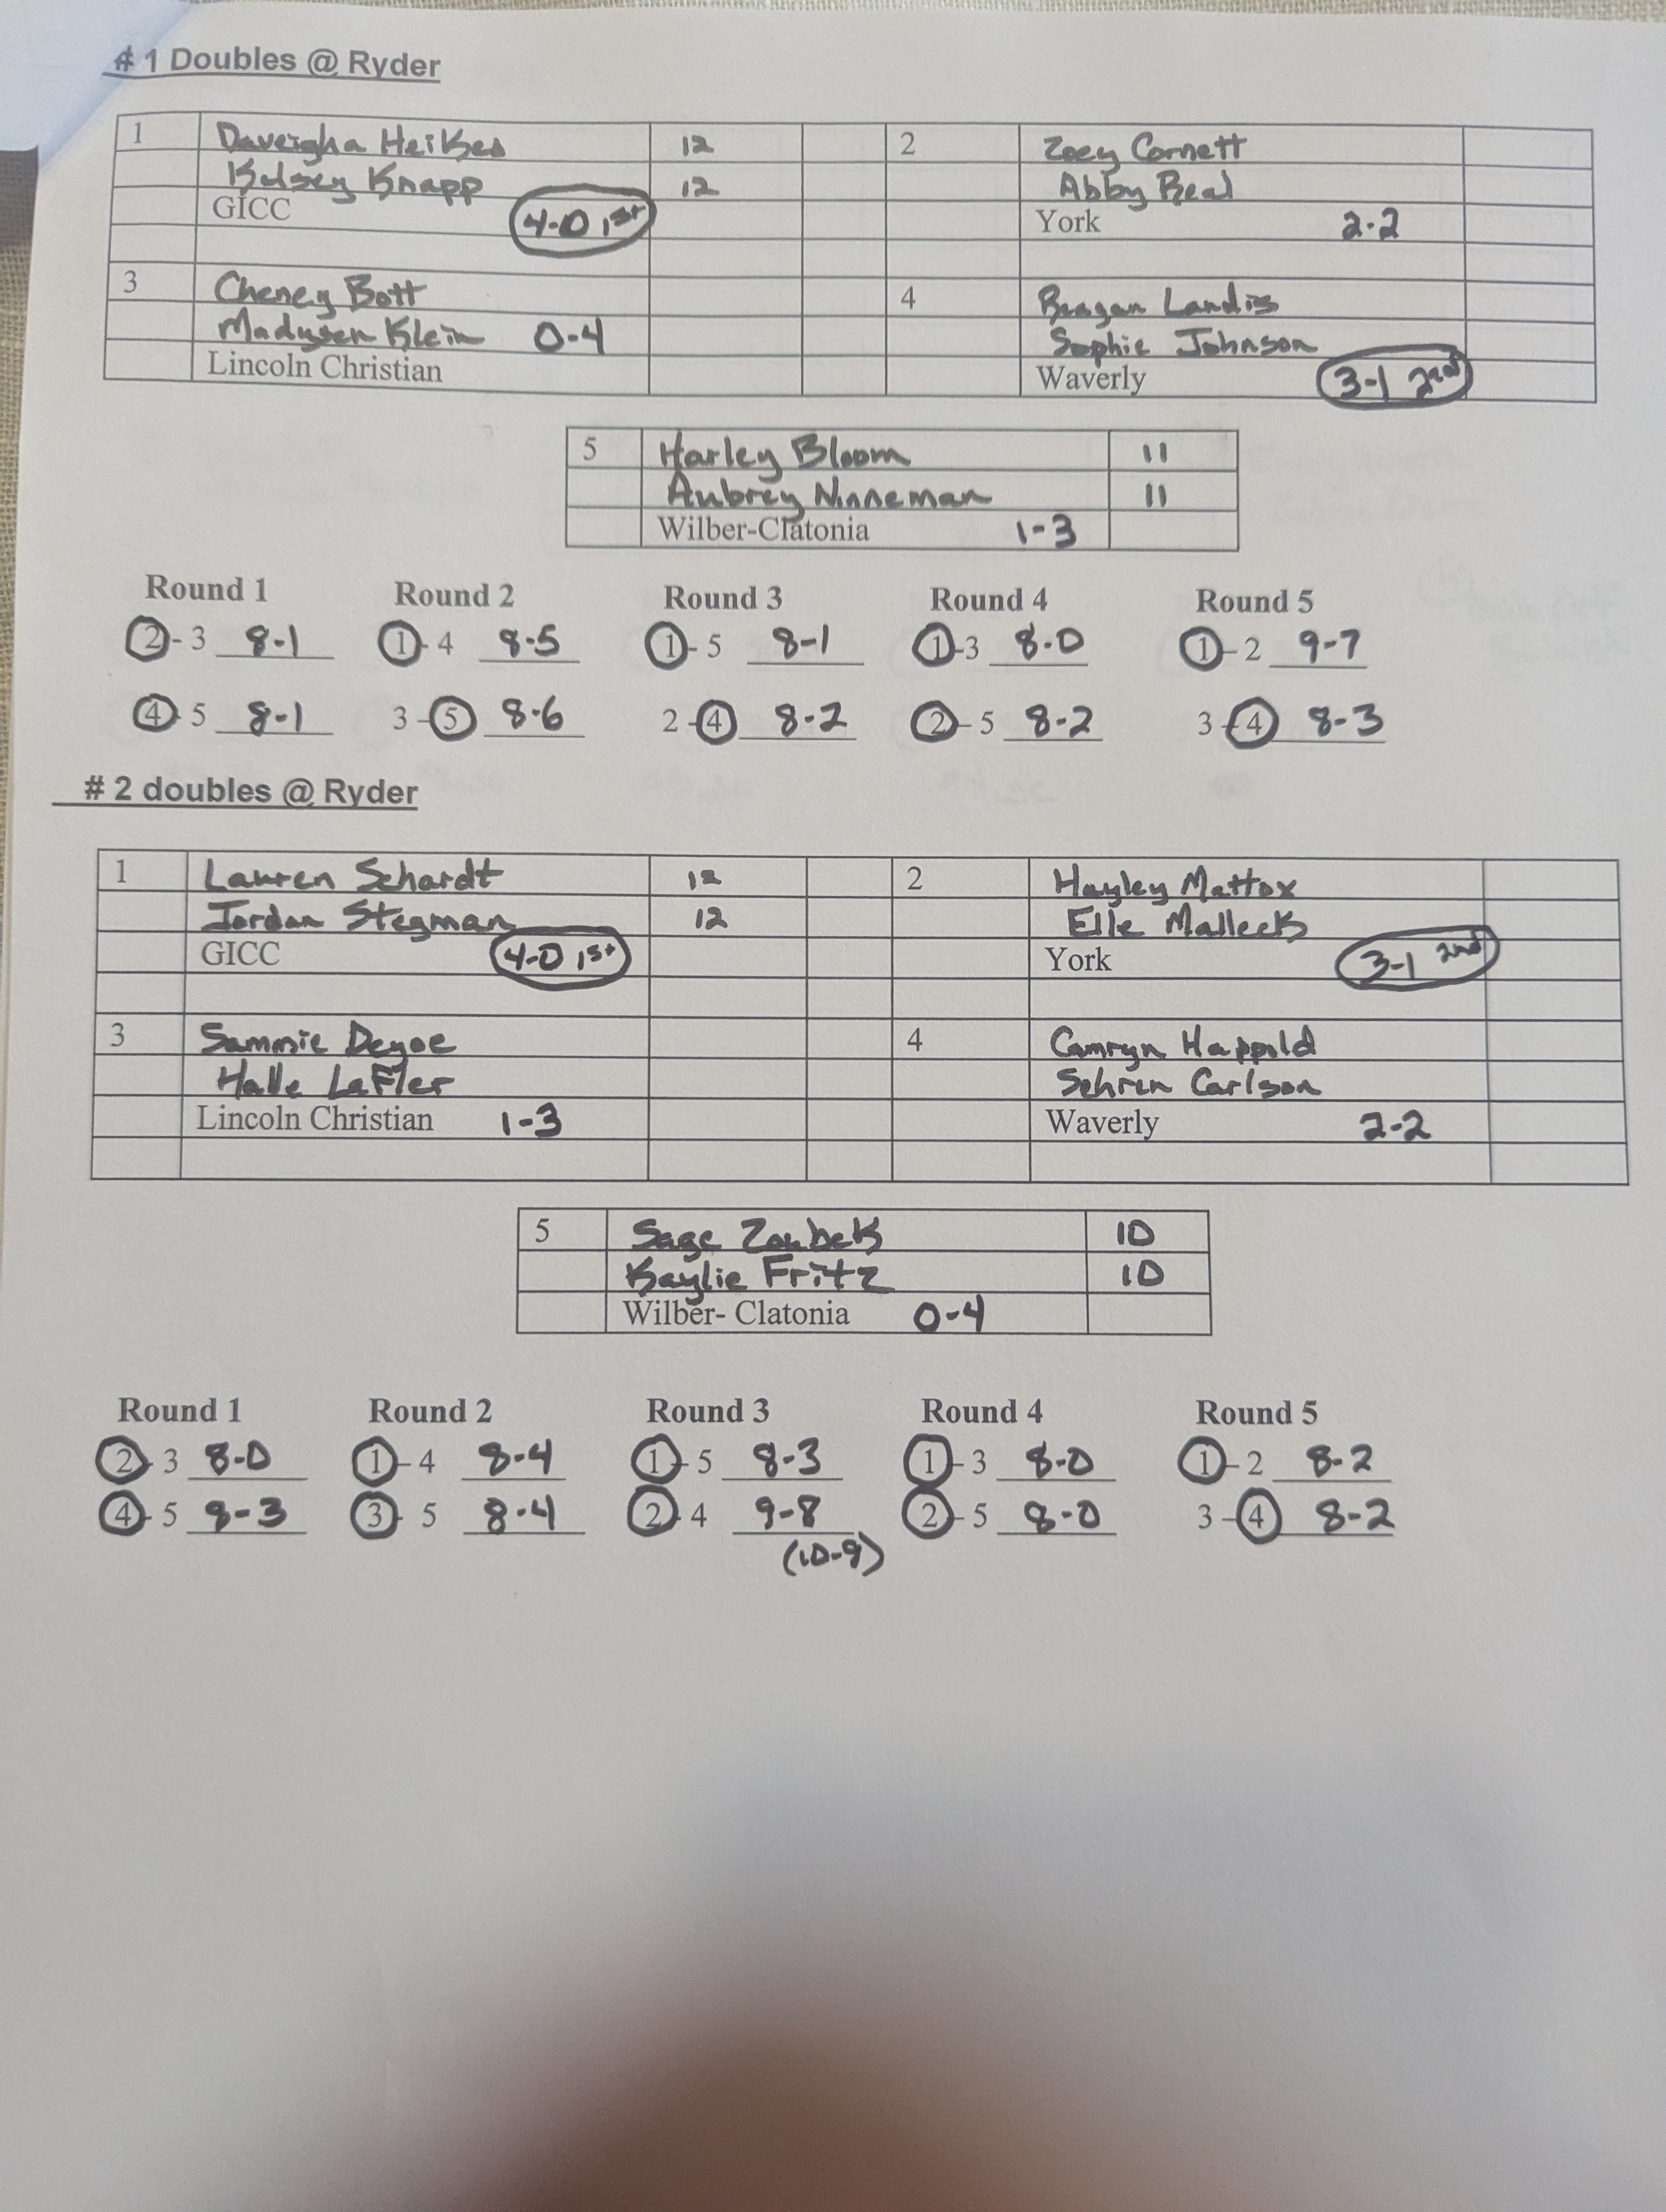 # 1 Doubles @ Ryder
1 Daveigha Heikes 12 2 Zoey Cornett
Kelsey Knapp 12 Abby Beal
GICC 4-0 1st York 2-2
3 Cheney Bott 4 Reagan Landis
Madysen Klein 0-4 Sophie Johnson
Lincoln Christian Waverly 3-1 2nd
5 Harley Bloom 11
Aubrey Ninneman 11
Wilber-Clatonia 1-3
Round 1 Round 2 Round 3 Round 4 Round 5
2 - 3 8-1 1 - 4 8-5 1 - 5 8-1 1 -3 8-0 1 - 2 9-7
4 - 5 8-1 3 - 5 8-6 2 - 4 8-2 2 - 5 8-2 3 - 4 8-3
# 2 doubles @ Ryder
1 Lauren Schardt 12 2 Hayley Mattox
Jordan Stegman 12 Elle Mallecks
GICC 4-0 1st York 3-1 2nd
3 Sammie Deyoe 4 Camryn Happold
Halle LaFler Sehren Carlson
Lincoln Christian 1-3 Waverly 2-2
5 Sage Zoubek 10
Kaylie Fritz 10
Wilber- Clatonia 0-4
Round 1 Round 2 Round 3 Round 4 Round 5
2 - 3 8-0 1 - 4 8-4 1 - 5 8-3 1 - 3 8-0 1 - 2 8-2
4 - 5 8-3 3 - 5 8-4 2 - 4 9-8 2 - 5 8-0 3 - 4 8-2
(10-8)